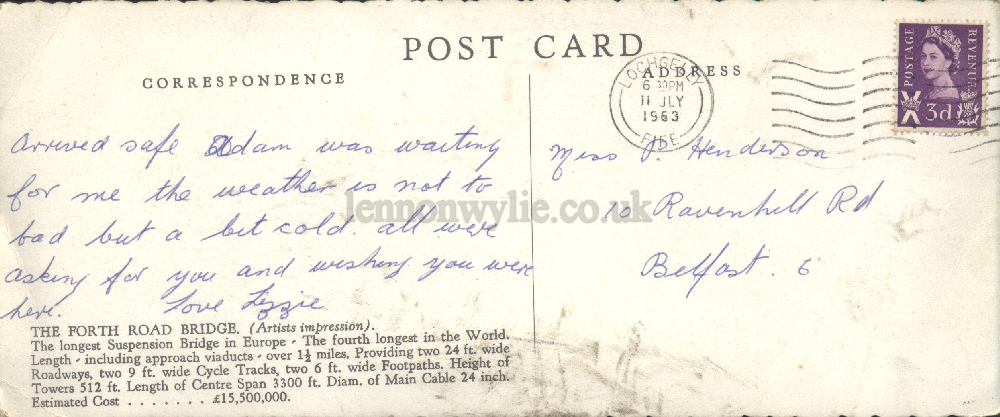 POST CARD
CORRESPONDENCE
ADDRESS
LOCHGELLY
6 30PM
11 JLY
1963
FIFE
POSTAGE
REVENUE
3d
Arrived safe Adam was waiting
for me the weather is not to
bad but a bit cold. all were
asking for you and wishing you were
here. Love Lizzie
Miss J. Henderson
10 Ravenhill Rd
Belfast. 6
lennonwylie.co.uk
THE FORTH ROAD BRIDGE. (Artists impression).
The longest Suspension Bridge in Europe - The fourth longest in the World.
Length - including approach viaducts - over 1½ miles. Providing two 24 ft. wide
Roadways, two 9 ft. wide Cycle Tracks, two 6 ft. wide Footpaths. Height of
Towers 512 ft. Length of Centre Span 3300 ft. Diam. of Main Cable 24 inch.
Estimated Cost . . . . . . . £15,500,000.